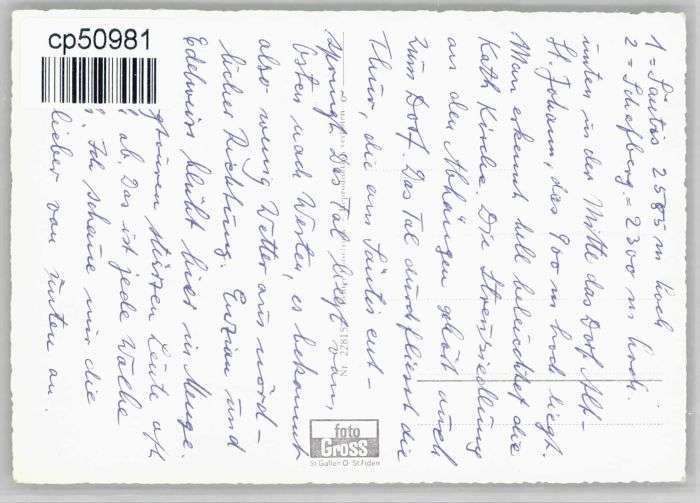 1 = Säntis 2505 m hoch
2 = Schafberg = 2300 m hoch.
unten in der Mitte das Dorf Alt-
St. Johann, das 900 m hoch liegt.
Man erkennt hell beleuchtet die
Kath Kirche. Die Streusiedlung
an den Abhängen gehört auch
zum Dorf. Das Tal durchfliesst die
Thur, die am Säntis ent-
springt. Das Tal liegt von
Osten nach Westen, es bekommt
also wenig Wetter aus nörd-
licher Richtung. Enzian und
Edelweiss blüht hier in Menge.
spüren stürzen Leute oft
ab. Das ist jede Woche
Ich schaue mir die
lieber von unten an.
cp50981
N 22815
foto
Gross
St Gallen O St Fiden